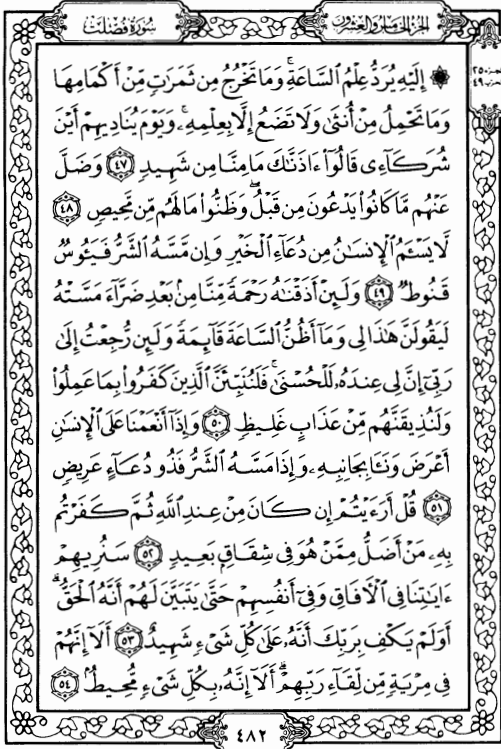 سُورَةُ فُصِّلَتْ
الجزء الخامس والعشرون
الجزء ٢٥
الحزب ٤٩
۞ إِلَيْهِ يُرَدُّ عِلْمُ ٱلسَّاعَةِ ۚ وَمَا تَخْرُجُ مِن ثَمَرَٰتٍ مِّنْ أَكْمَامِهَا
وَمَا تَحْمِلُ مِنْ أُنثَىٰ وَلَا تَضَعُ إِلَّا بِعِلْمِهِۦ ۚ وَيَوْمَ يُنَادِيهِمْ أَيْنَ
شُرَكَآءِى قَالُوٓا۟ ءَاذَنَّـٰكَ مَا مِنَّا مِن شَهِيدٍ ٤٧ وَضَلَّ
عَنْهُم مَّا كَانُوا۟ يَدْعُونَ مِن قَبْلُ ۖ وَظَنُّوا۟ مَا لَهُم مِّن مَّحِيصٍ ٤٨
لَّا يَسْـَٔمُ ٱلْإِنسَـٰنُ مِن دُعَآءِ ٱلْخَيْرِ وَإِن مَّسَّهُ ٱلشَّرُّ فَيَـُٔوسٌ
قَنُوطٌ ٤٩ وَلَئِنْ أَذَقْنَـٰهُ رَحْمَةً مِّنَّا مِنۢ بَعْدِ ضَرَّآءَ مَسَّتْهُ
لَيَقُولَنَّ هَـٰذَا لِى وَمَآ أَظُنُّ ٱلسَّاعَةَ قَآئِمَةً وَلَئِن رُّجِعْتُ إِلَىٰ
رَبِّىٓ إِنَّ لِى عِندَهُۥ لَلْحُسْنَىٰ ۚ فَلَنُنَبِّئَنَّ ٱلَّذِينَ كَفَرُوا۟ بِمَا عَمِلُوا۟
وَلَنُذِيقَنَّهُم مِّنْ عَذَابٍ غَلِيظٍ ٥٠ وَإِذَآ أَنْعَمْنَا عَلَى ٱلْإِنسَـٰنِ
أَعْرَضَ وَنَـَٔا بِجَانِبِهِۦ وَإِذَا مَسَّهُ ٱلشَّرُّ فَذُو دُعَآءٍ عَرِيضٍ
٥١ قُلْ أَرَءَيْتُمْ إِن كَانَ مِنْ عِندِ ٱللَّهِ ثُمَّ كَفَرْتُم
بِهِۦ مَنْ أَضَلُّ مِمَّنْ هُوَ فِى شِقَاقٍۭ بَعِيدٍ ٥٢ سَنُرِيهِمْ
ءَايَـٰتِنَا فِى ٱلْـَٔافَاقِ وَفِىٓ أَنفُسِهِمْ حَتَّىٰ يَتَبَيَّنَ لَهُمْ أَنَّهُ ٱلْحَقُّ ۗ
أَوَلَمْ يَكْفِ بِرَبِّكَ أَنَّهُۥ عَلَىٰ كُلِّ شَىْءٍ شَهِيدٌ ٥٣ أَلَآ إِنَّهُمْ
فِى مِرْيَةٍ مِّن لِّقَآءِ رَبِّهِمْ ۗ أَلَآ إِنَّهُۥ بِكُلِّ شَىْءٍ مُّحِيطٌۢ ٥٤
٤٨٢